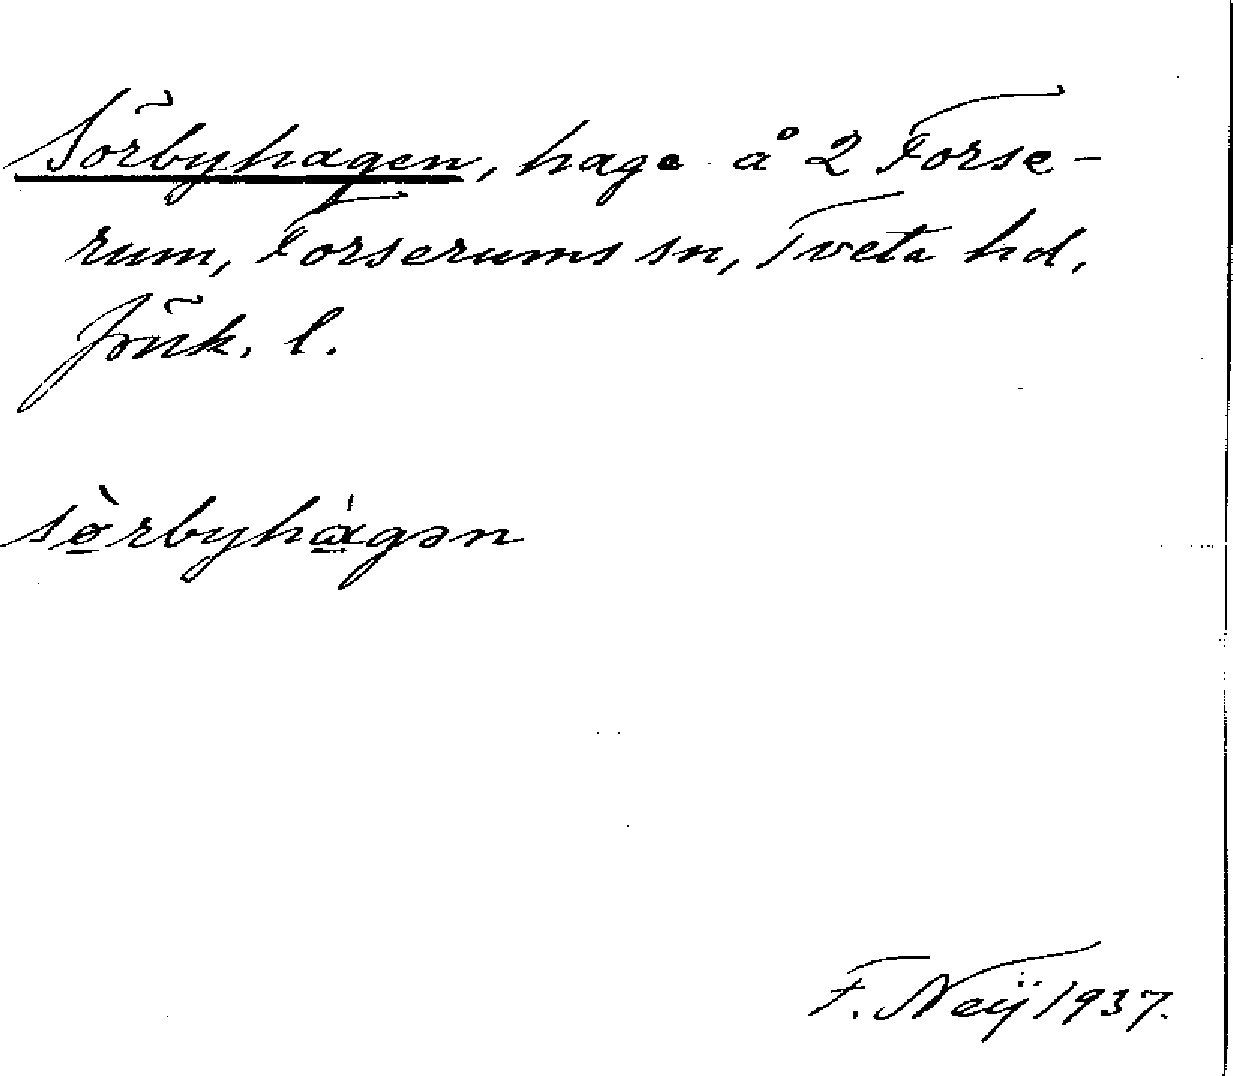 Sörbyhagen, hage å 2 Forse-
rum, Forserums sn, Tveta hd,
Jönk. l.
sø̀rbyhágən
F. Neij 1937.